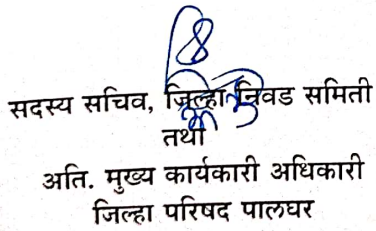 सदस्य सचिव, जिल्हा निवड समिती
तथा
अति. मुख्य कार्यकारी अधिकारी
जिल्हा परिषद पालघर